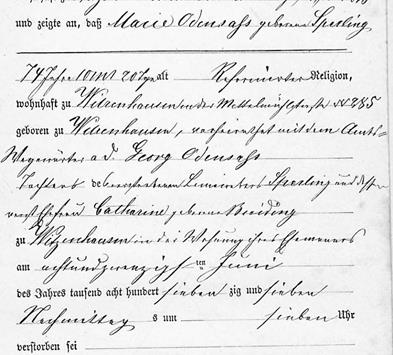 und zeigte an, daß Marie Odensass geborene Sperling
74 Jahre 10 Mt 20 Tge alt Reformirter Religion,
wohnhaft zu Witzenhausen in der Mittelmühlstraße № 285
geboren zu Witzenhausen, verheirathet mit dem Amts-
Wegewärter a. D. Georg Odensass
Tochter des verstorbenen Sperling und dessen
Ehefrau Catharine geborene
zu Witzenhausen in der Wohnung ihres Ehemannes
am achtundzwanzigsten Juni
des Jahres tausend acht hundert siebenzig und sieben
Nachmittags um sieben Uhr
verstorben sei